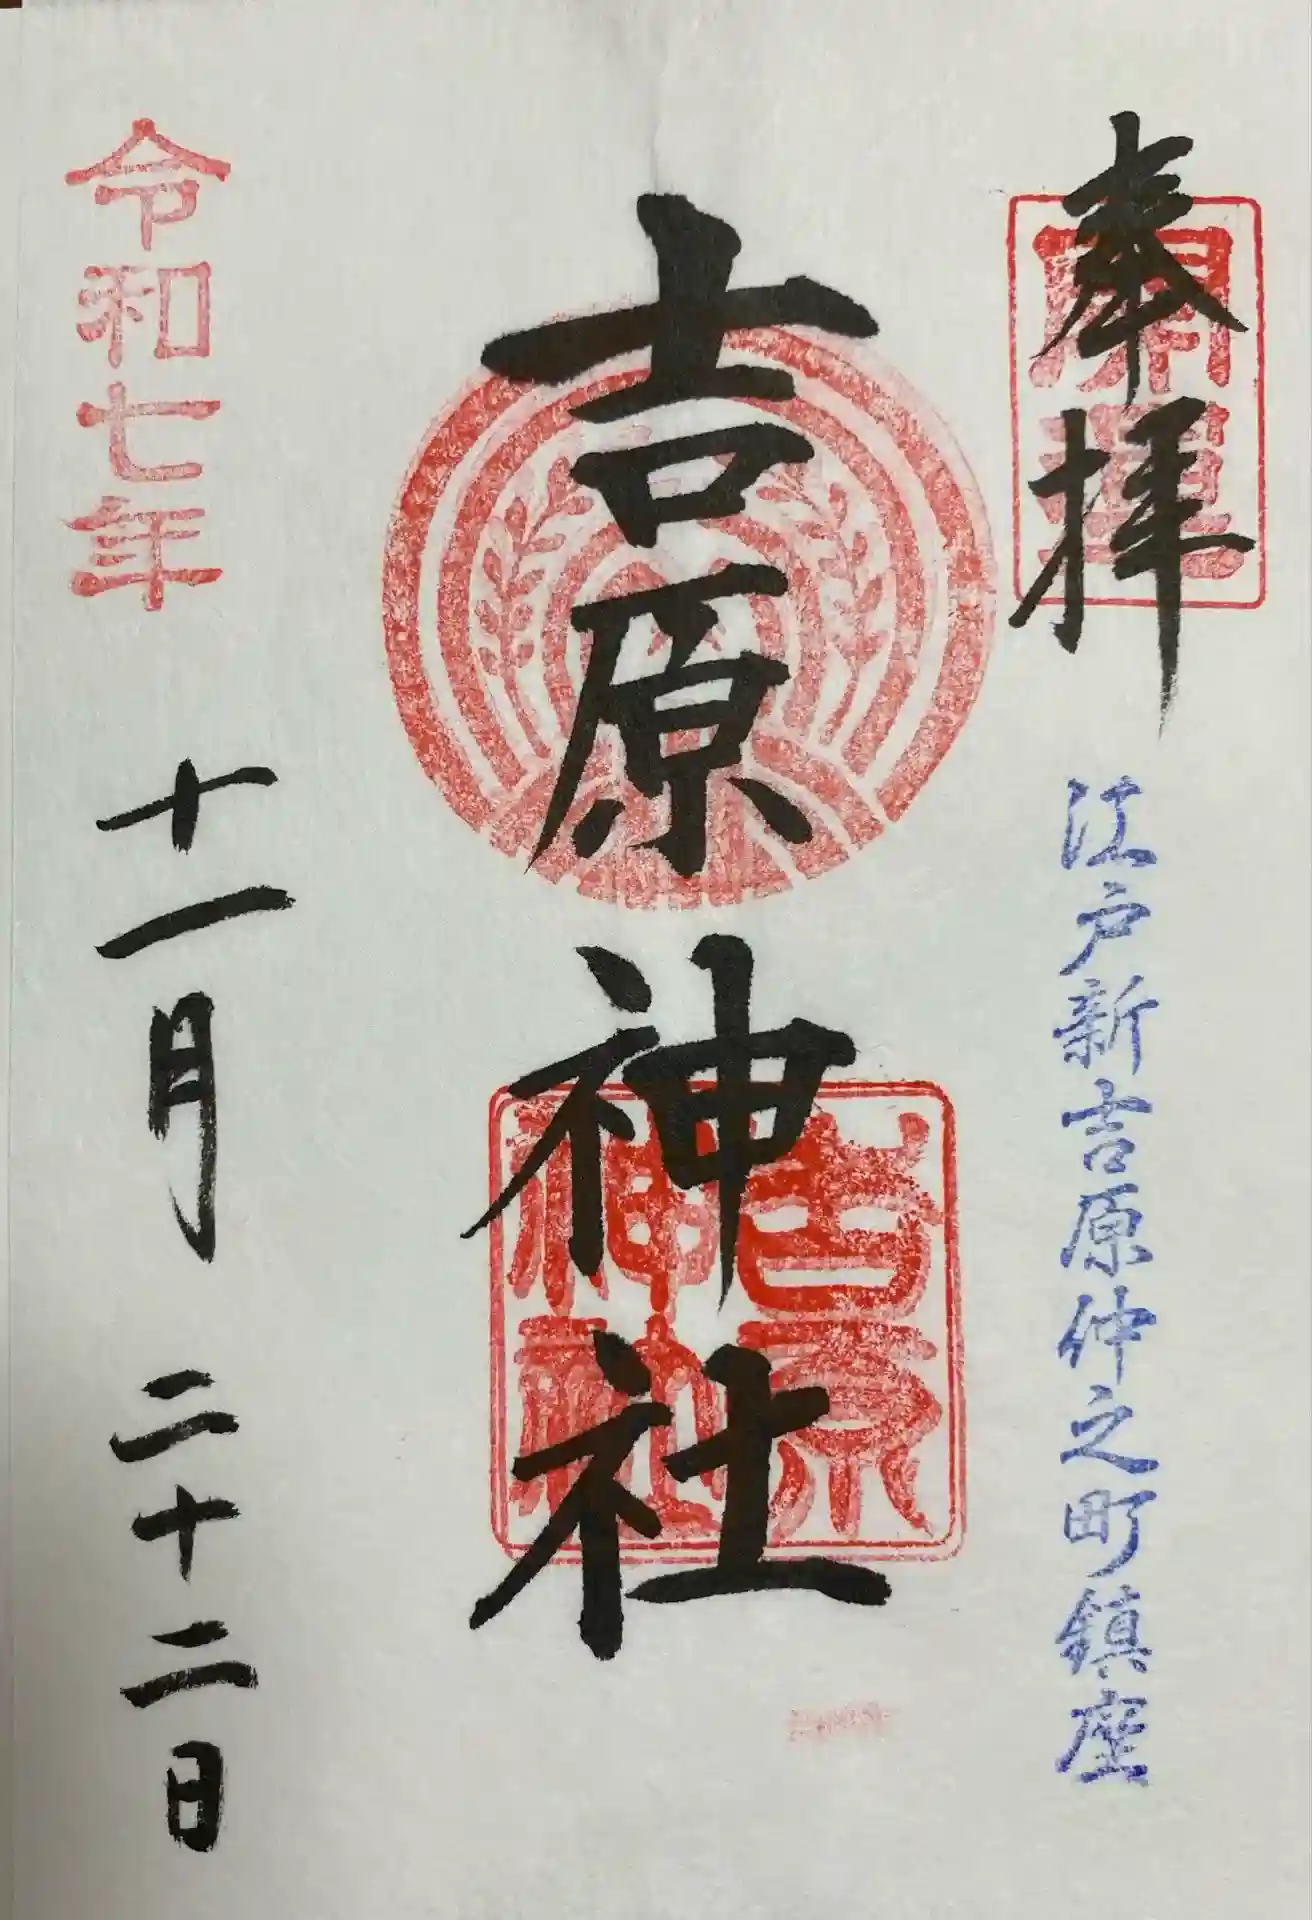 奉拝
開運
江戸新吉原仲之町鎮座
吉原神社
吉原
神社
令和七年
十一月二十二日